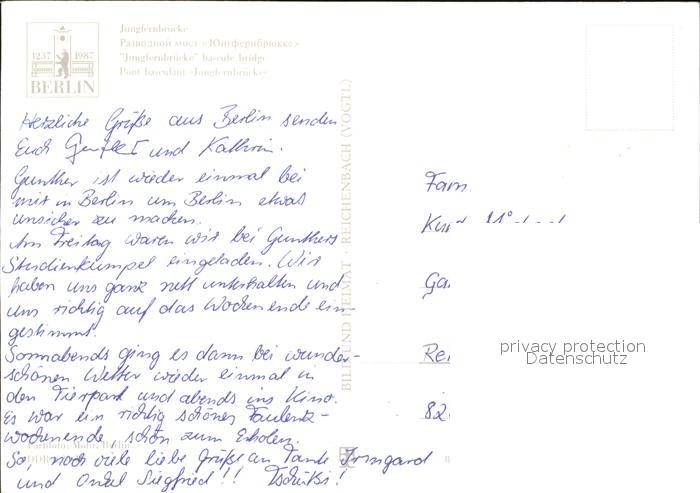 1237 1987
BERLIN
Jungfernbrücke
Разводной мост «Юнгфернбрюкке»
"Jungfernbrücke" bascule bridge
Pont basculant «Jungfernbrücke»
Herzliche Grüße aus Berlin senden
Euch und Kathrin.
Gunther ist wieder einmal bei
mir in Berlin um Berlin etwas
unsicher zu machen.
Am Freitag waren wir bei Gunthers
Studienkumpel eingeladen. Wir
haben uns ganz nett unterhalten und
uns richtig auf das Wochenende ein-
gestimmt.
Sonnabends ging es dann bei wunder-
schönen Wetter wieder einmal in
den Tierpark und abends ins Kino.
Es war ein richtig schönes Faulenz-
wochenende, schön zum Erholen.
So, noch viele liebe Grüße an Tante Irmgard
und Onkel Siegfried!! Tschüßi!
BILD UND HEIMAT · REICHENBACH (VOGTL)
Fam
Ga
Rei
82
privacy protection
Datenschutz